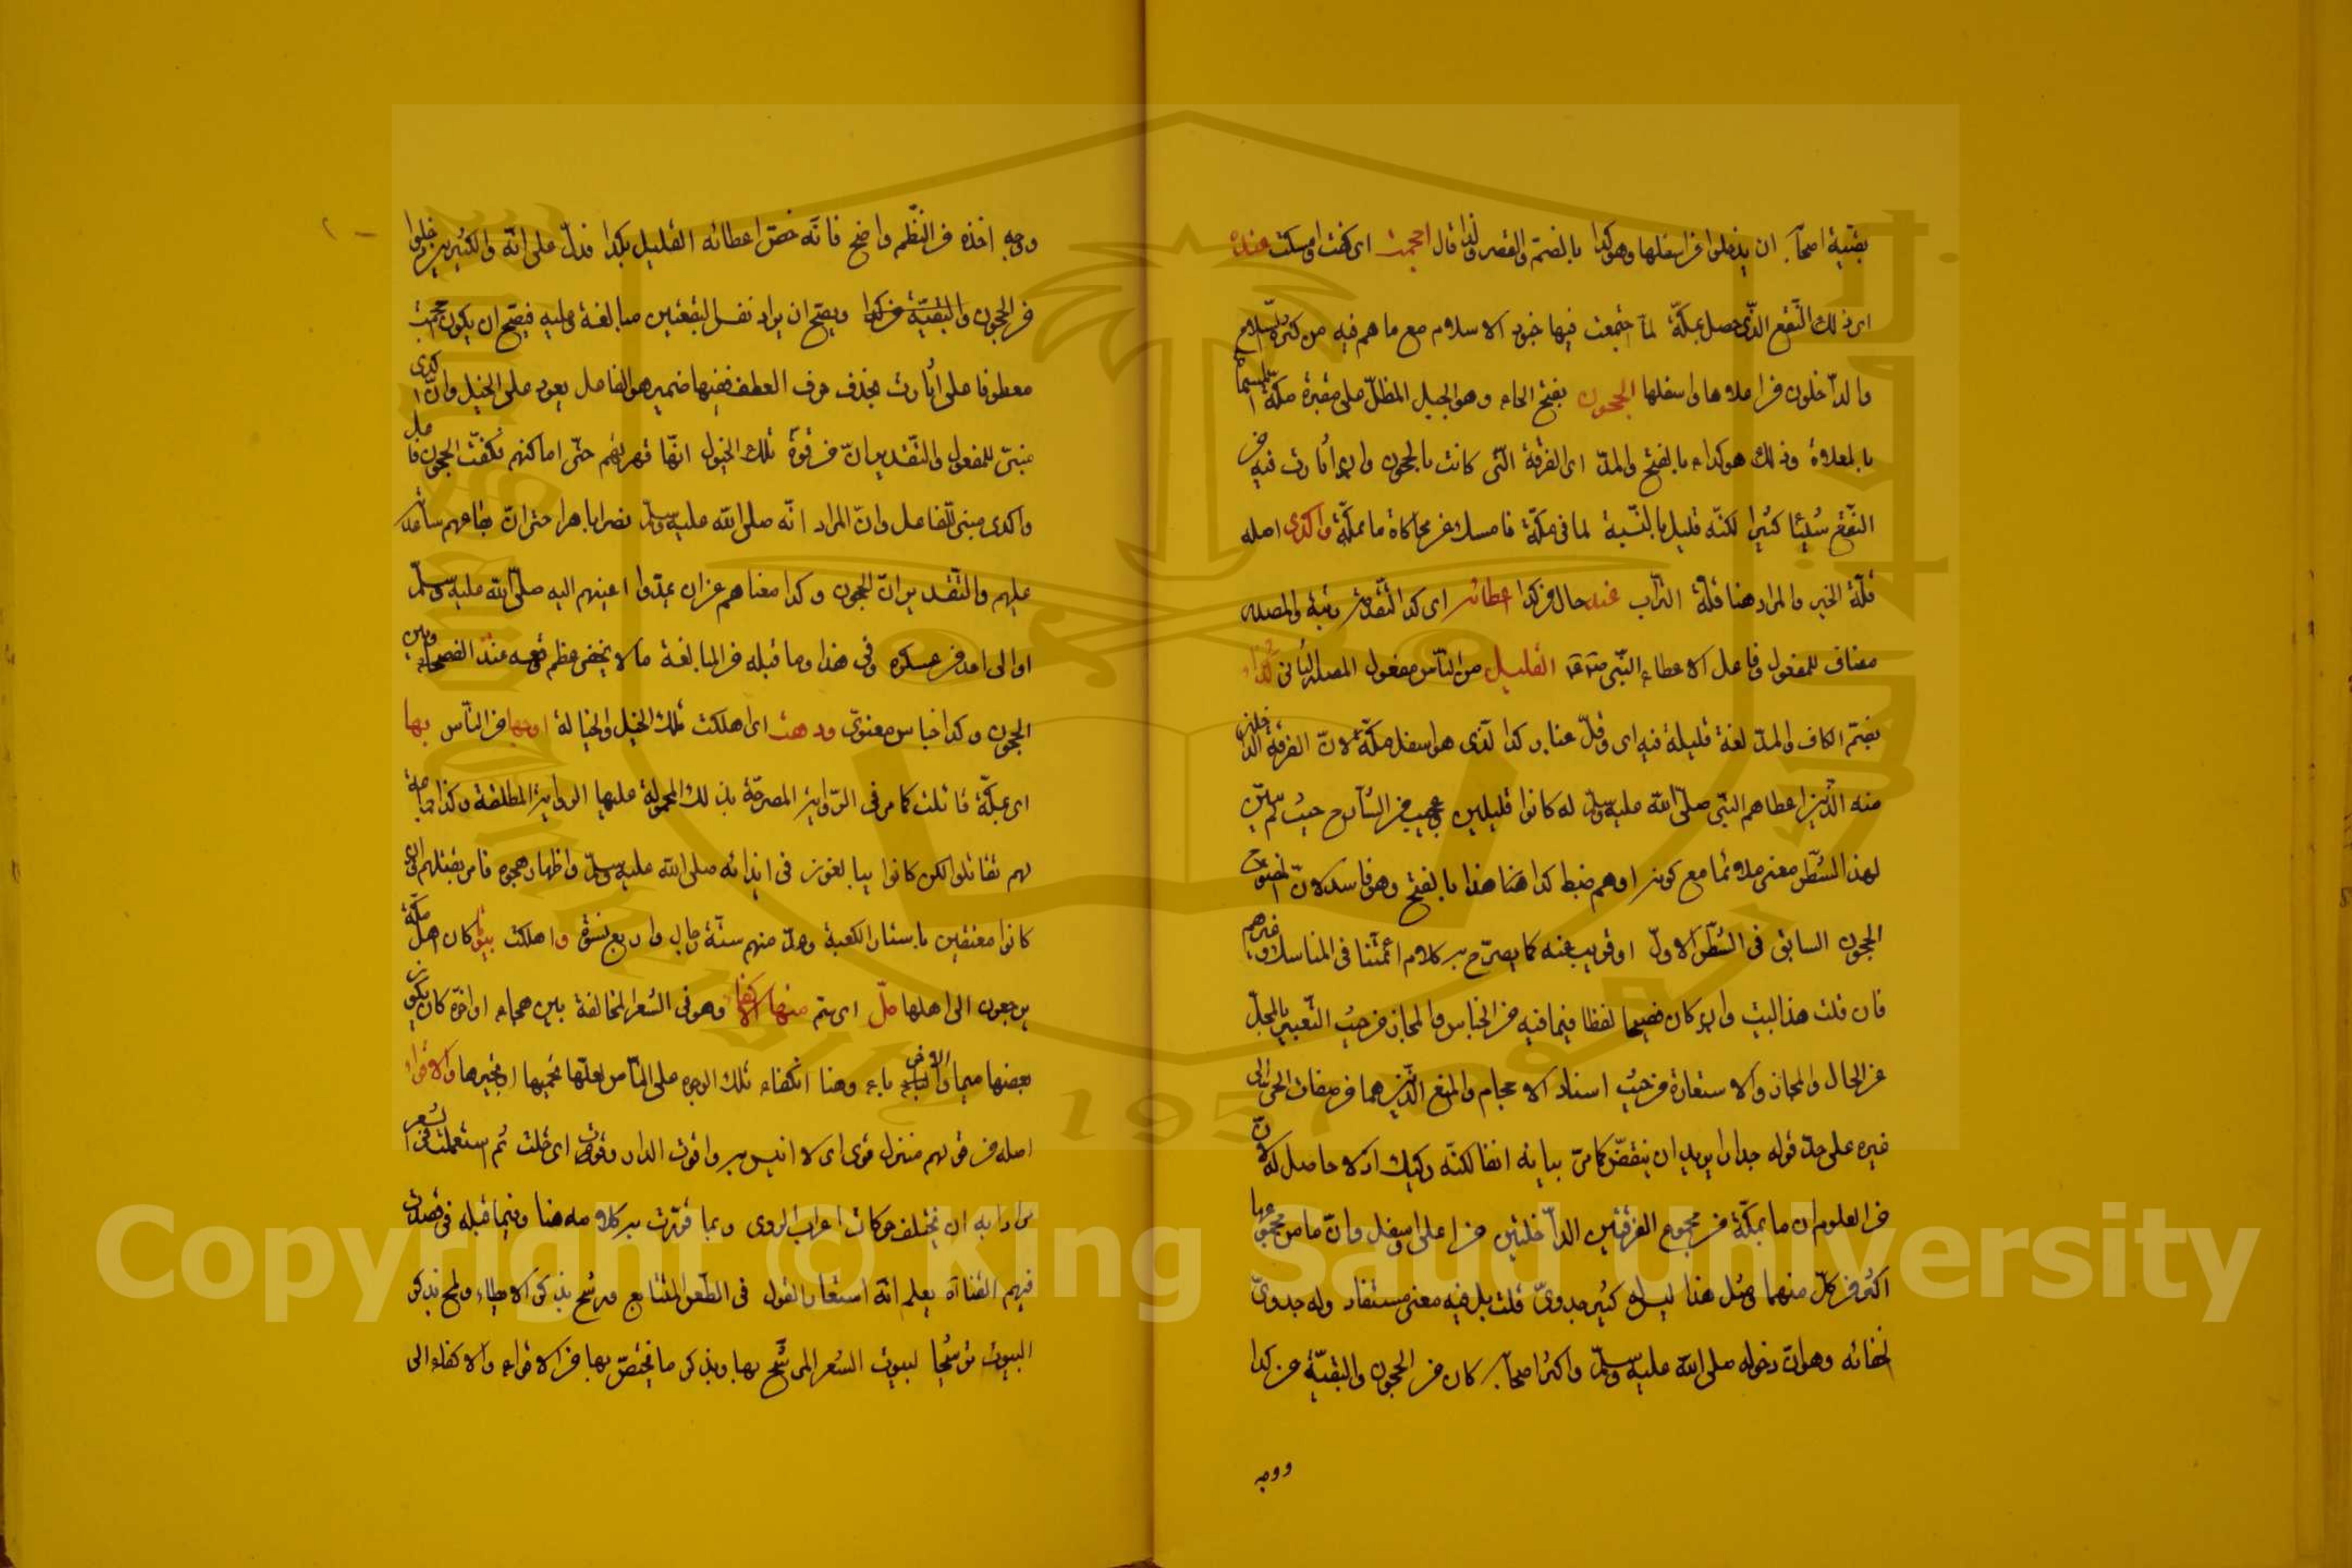 بقيّة اصحابه ان يدخلوا من اسفلها وهو كدا بالضمّ والقصر ولذا قال احجمت اى كفت وامسكت عنده
اى ذلك النّقع الذّى حصل بمكّة لمّا اجتمعت فيها خيول الاسلام مع ما هم فيه من كثرة السلاح
والدّاخلون من اعلاها واسفلها الحجون بفتح الحاء وهو الجبل المطلّ على مقبرة مكّة المسماة
بالمعلاة وذلك هو كداء بالفتح والمدّ اى الفرقة التّى كانت بالحجون وان اثارت فيه من
النّقع شيئا كثيرا لكنّه قليل بالنّسبة لما فى مكّة فامسك عن محاكاة ما بمكّة واكدى اصله
قلّة الخير والمراد هنا قلّة التراب عند حال من كدا اعطائه اى كدا لتقدّمه رتبة والمصدر
مضاف للمفعول وفاعل الاعطاء النّبى القليل من النّاس مفعول المصدر الثانى كداء
بضمّ الكاف والمدّ لغة قليلة فيه اى وقلّ عنا وكدا الّذى هو اسفل مكّة لانّ الفرقة الداخلين
منه الّذين اعطاهم النبّى صلّى الله عليه وسلّم له كانوا قليلين وعجيب من الشّارح حيث لم يبيّن
لهذا الشّطر معنى ملائما مع كونه اوهم ضبط كدا هنا هذا بالفتح وهو فاسد لانّ المفتوح
الحجون السابق فى الشّطر الاولّ او قريب منه كما يصرّح به كلام ائمتّنا فى المناسك وغيرهم
فان قلت هذا البيت وان كان فصيحا لفظا فيما فيه من الجناس والمجاز من حيث التّعبير بالمحلّ
عن الحال والمجاز والاستعارة من حيث اسناد الاحجام والمنع الّذين هما من صفات الحى الى
غيره على حدّ قوله جدارا يريد ان ينقضّ كما مرّ بيانه انفا لكنّه ركيك اذ لا حاصل له لانّ
من المعلوم ان ما بمكّة من مجموع الفرقتين الدّاخلتين من اعلى واسفل وانّ ما من مجموعها
اكثر من كلّ منهما ومثل هذا ليس له كثير جدوىّ قلت بل فيه معنى مستفاد وله جدوىّ
لخفائه وهو انّ دخوله صلى الله عليه وسلّم واكثر اصحابه كان من الحجون والبقيّة من كدا
ووجه
ووجه اخذه من النّظم واضح فانّه خصّ اعطائه القليل بكدا فدلّ على انّه والكثيرين دخلوا
من الحجون والبقيّة من كدا ويصحّ ان يراد نفس البقعتين مبالغة وعليه فيصّح ان يكون احجمت
معطوفا على اثارت بحذف حرف العطف ففيها ضمير هو الفاعل يعود على الخيل وانّ اكدى
مبنىّ للمفعول والتّقدير انّ من قوّة تلك الخيول انّها قهرتهم حتّى اماكنهم فكفّت الحجون فاعل
واكدى مبنى للفاعل وانّ المراد انّه صلى الله عليه وسلّم نصر باهرا حتى انّ بقاعهم ساعدته
عليهم والتّقدير انّ الحجون وكدا منعاهم عن ان يمدّوا اعينهم اليه صلّى الله عليه وسلّم
او الى احد من عسكره وفى هذا وما قبله من المبالغة ما لا يخفى عظم وقعه عند الفصحاء وبين
الحجون وكدا جناس معنوىّ ودهت اى اهلكت تلك الخيل والخيالة اوجها من النّاس بها
اى بمكّة قاتلت كما مر فى الرّوايه المصرحّة بذلك المحمولة عليها الروايه المطلقة وكذا جماعة
لهم تقاتلوا لكن كانوا يبالغون فى ايذائه صلى الله عليه وسلّم واظهار هجوه فامر بقتلهم وان
كانوا معتقين باستار الكعبة وهدّ منهم ستّة رجال واربع نسوة واهلكت بيوتا كان اهل مكّة
يرجعون الى اهلها ملّ اى سئم منها الاكفاء وهو فى الشعر المخالفة بين هجاء اواخره كان يكون
بعضها ميما والاخر باء وهنا انكفاء تلك الوجوه على النّاس لعلّها تحميها او تجيرها والاقواء
اصله من قولهم منزل قوى اى لا انيس به واقوت الدار وقويت اى خلت ثم استعملت فى الشعر
مرادا به ان يختلف حركات اعراب الروى وبما قرّرت به كلامه هنا وفيما قبله فى قصدت
فيهم القناة يعلم انّه استعار القول فى الطّعن المتتابع ورشّح بذكر الايطاء ولمح بذكر
البيوت توشيحا لبيوت الشعر المرشّح بها وبذكر ما يختصّ بها من الاقواء والاكفاء الى
Copyright © King Saud University
1957